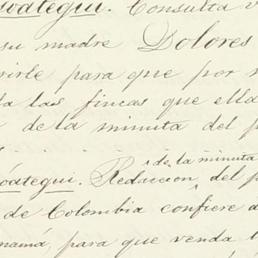 uategui. Consulta v
su madre Dolores
rirle para que por m
ta las fincas que ella
de la minuta del p
de la minuta
óategui. Redaccion del p
de Colombia confiere a
namá, para que venda t